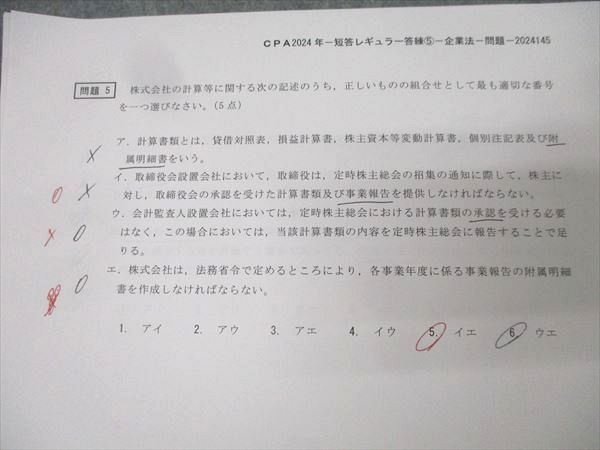 CPA2024年－短答レギュラー答練⑤－企業法－問題－2024145
問題 5 株式会社の計算等に関する次の記述のうち，正しいものの組合せとして最も適切な番号
を一つ選びなさい。（5点）
ア．計算書類とは，貸借対照表，損益計算書，株主資本等変動計算書，個別注記表及び附
属明細書をいう。
イ．取締役会設置会社において，取締役は，定時株主総会の招集の通知に際して，株主に
対し，取締役会の承認を受けた計算書類及び事業報告を提供しなければならない。
ウ．会計監査人設置会社においては，定時株主総会における計算書類の承認を受ける必要
はなく，この場合においては，当該計算書類の内容を定時株主総会に報告することで足
りる。
エ．株式会社は，法務省令で定めるところにより，各事業年度に係る事業報告の附属明細
書を作成しなければならない。
1． アイ 2． アウ 3． アエ 4． イウ 5． イエ 6． ウエ